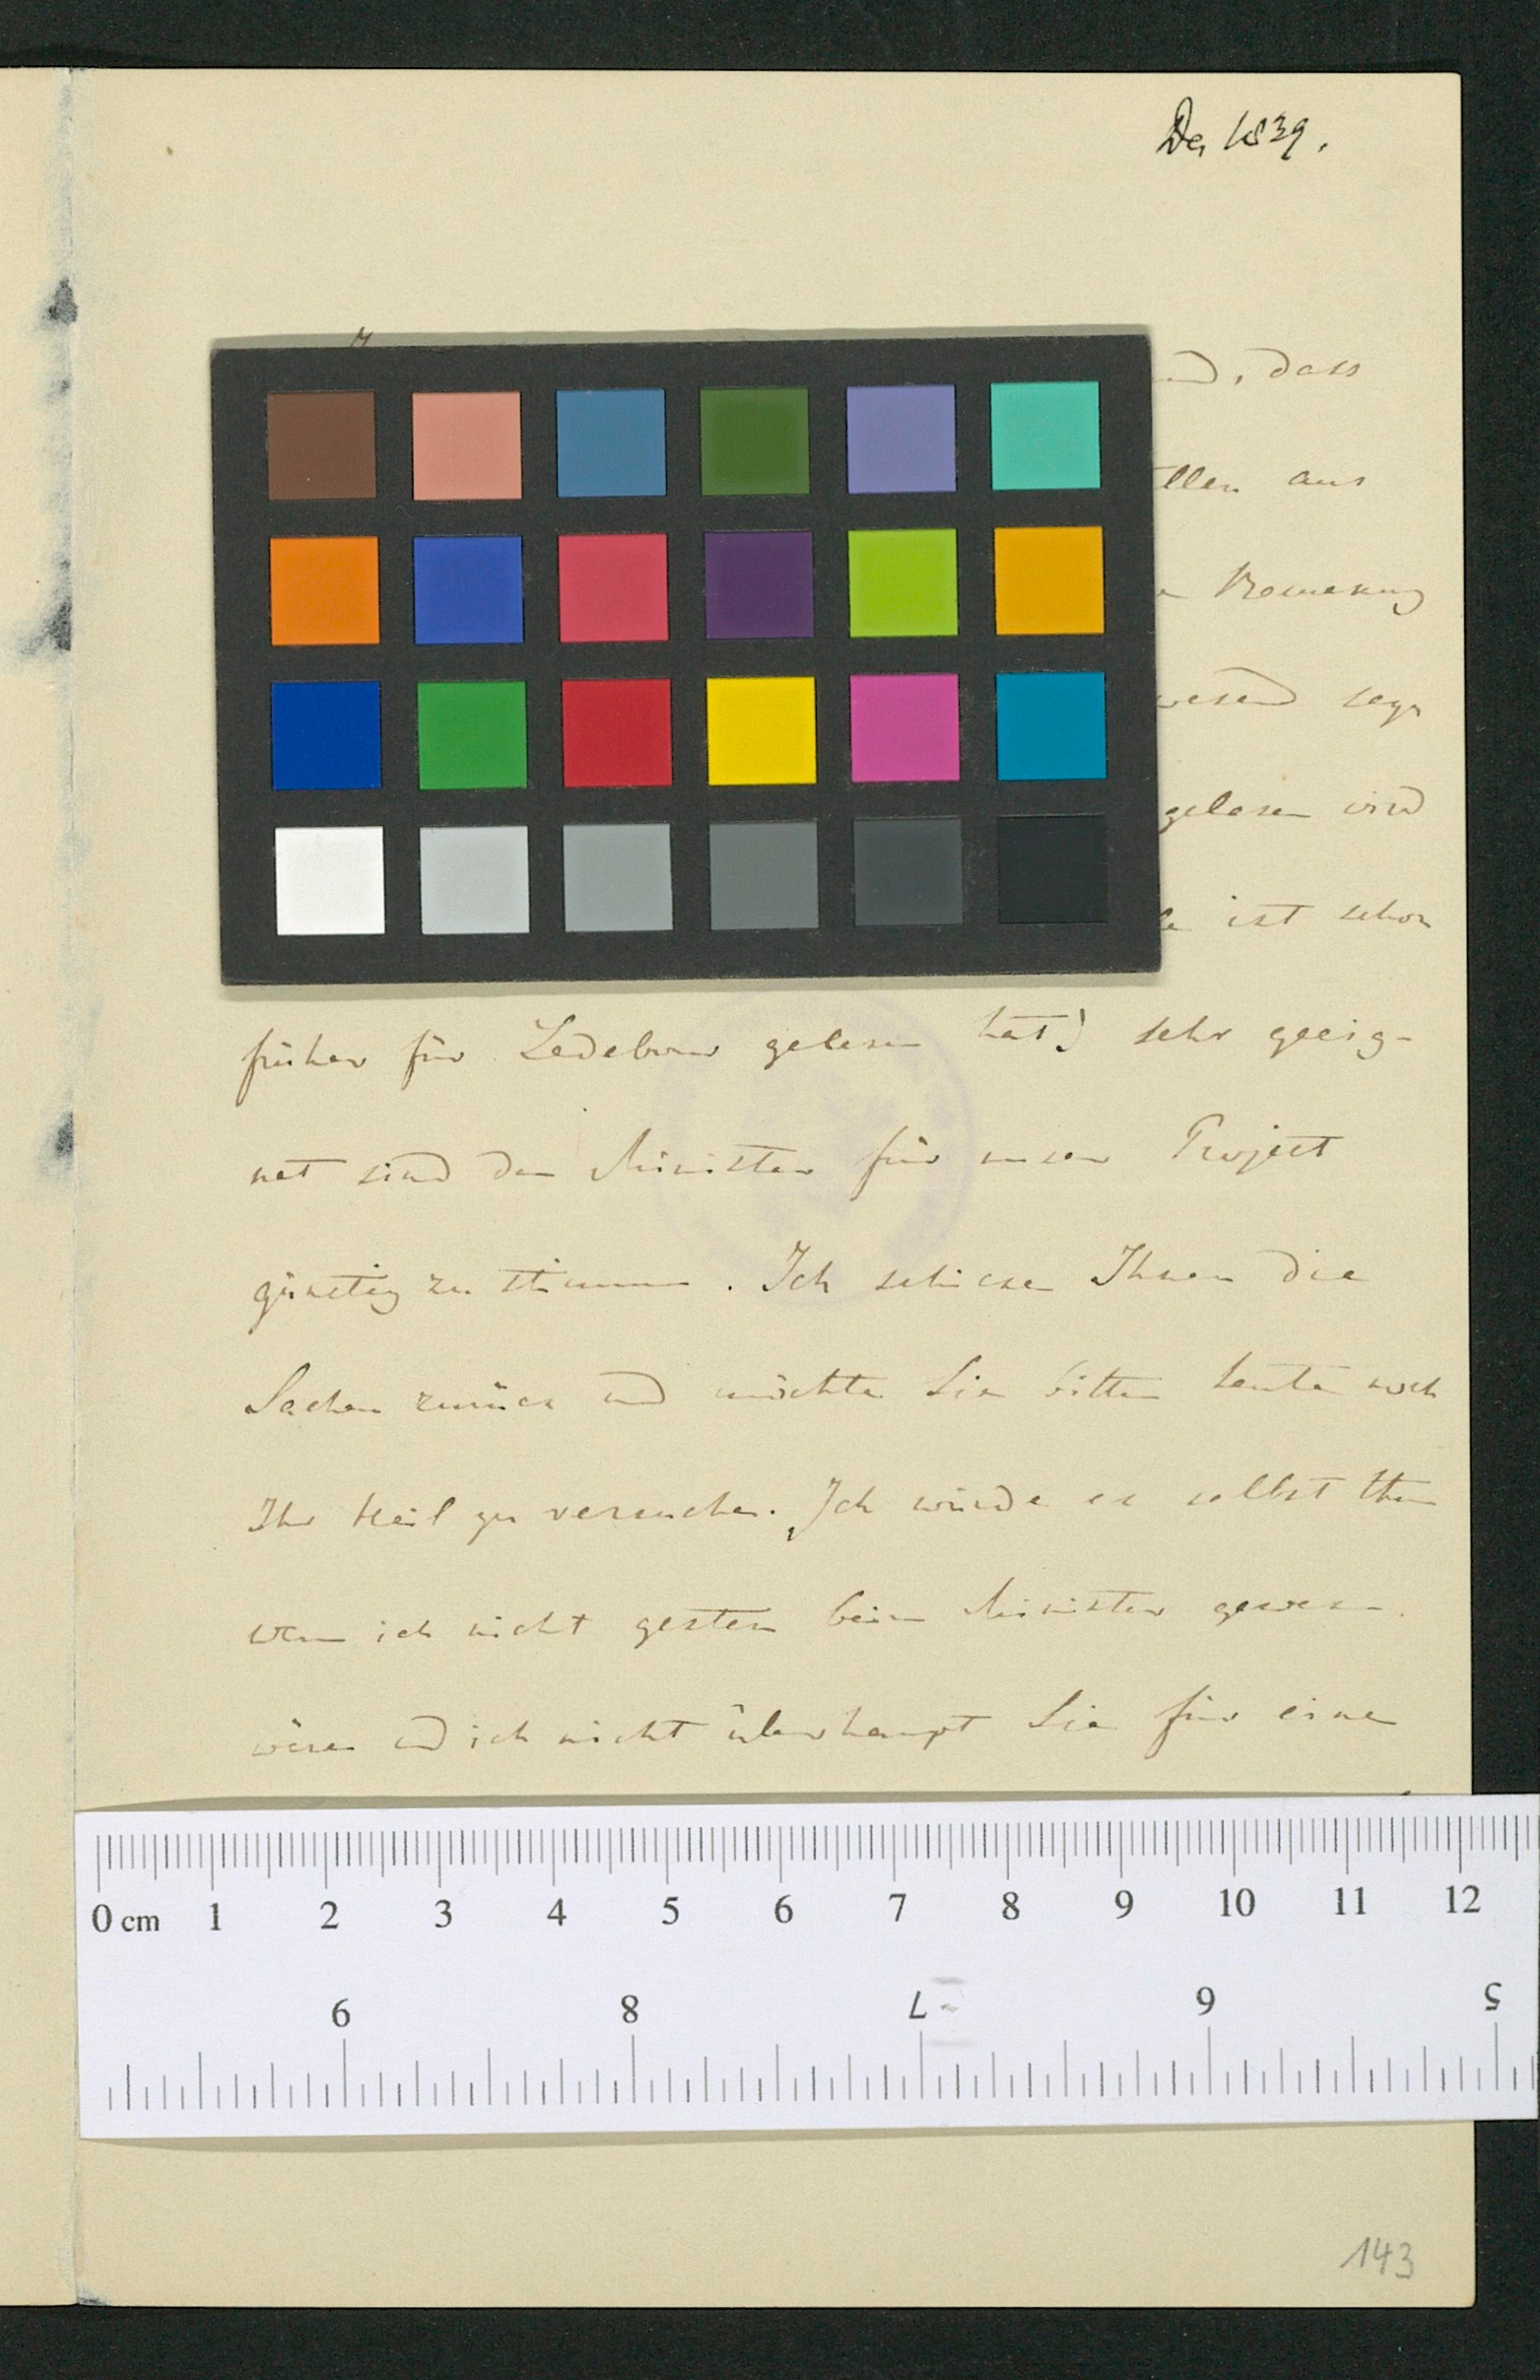 De, 1839.
dass
llen aus
Bemerkung
wesend seyn
gelesen wird
ist schon
früher für Ledebour gelesen hat) sehr geeig-
net sind den Minister für unser Project
günstig zu stimmen. Ich schicke Ihnen die
Sachen zurück und möchte Sie bitten heute noch
Ihr Heil zu versuchen. Ich würde es selbst thun
wenn ich nicht gestern beim Minister gewesen
wäre und ich nicht überhaupt Sie für eine
0 cm 1 2 3 4 5 6 7 8 9 10 11 12
9 8 7 6 5
143